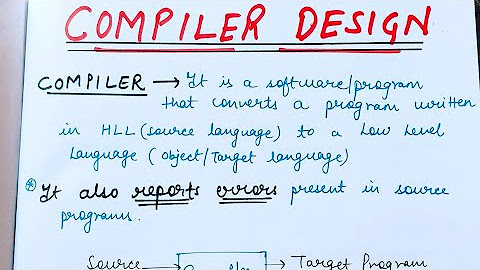 COMPILER DESIGN
COMPILER → It is a software/program
that converts a program written
in HLL (source language) to a Low Level
Language (object/Target language)
* It also reports errors present in source
programs.
Source → → Target Program